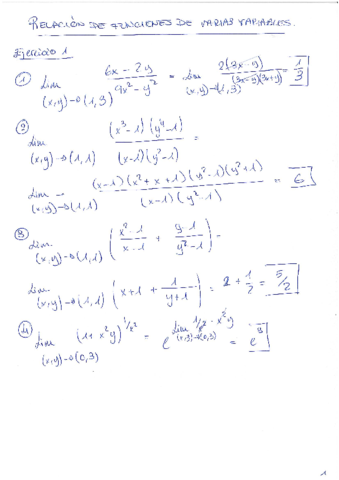 RELACIÓN DE FUNCIONES DE VARIAS VARIABLES.
Ejercicio 1
① Lim (x,y)→(1,3) (6x - 2y)/(9x² - y²) = Lim (x,y)→(1,3) 2(3x-y)/((3x-y)(3x+y)) = 1/3
② Lim (x,y)→(1,1) (x³-1)(y⁴-1)/((x-1)(y²-1)) =
Lim (x,y)→(1,1) (x-1)(x²+x+1)(y²-1)(y²+1)/((x-1)(y²-1)) = 6
③ Lim (x,y)→(1,1) ((x²-1)/(x-1) + (y-1)/(y²-1)) =
Lim (x,y)→(1,1) (x+1 + 1/(y+1)) = 2 + 1/2 = 5/2
④ Lim (x,y)→(0,3) (1+x²y)^(1/x²) = e^(Lim (x,y)→(0,3) 1/x² · x²y) = e³
1